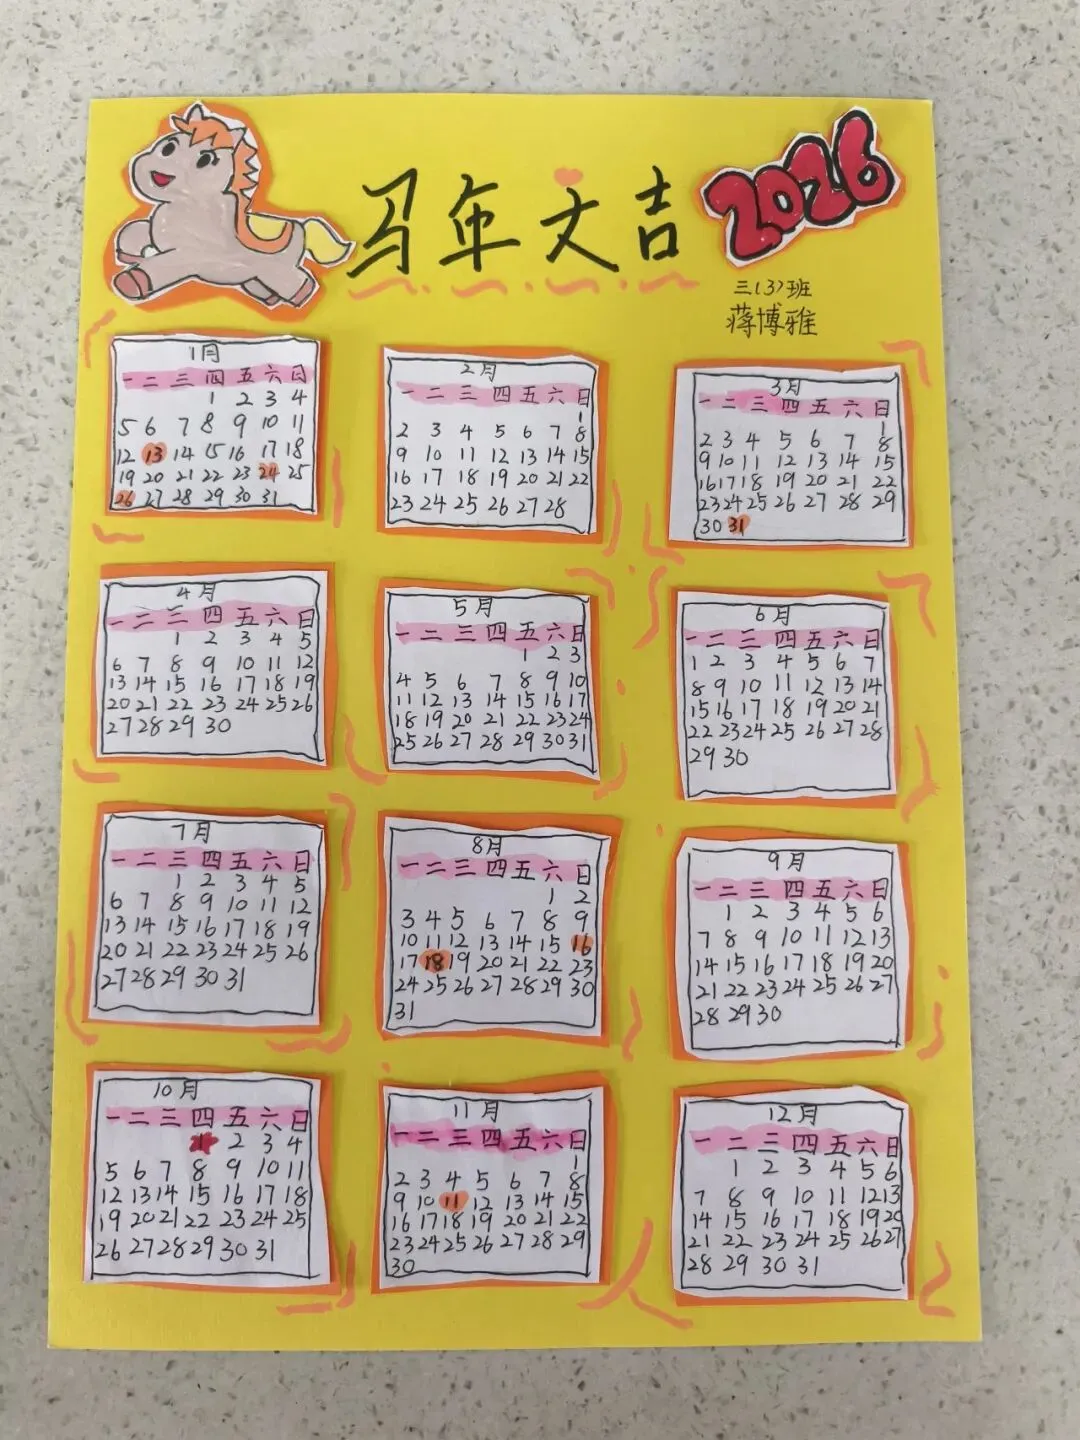 马年大吉
2026
三(3)班
蒋博雅
1月
一 二 三 四 五 六 日
1 2 3 4
5 6 7 8 9 10 11
12 13 14 15 16 17 18
19 20 21 22 23 24 25
26 27 28 29 30 31
2月
一 二 三 四 五 六 日
1
2 3 4 5 6 7 8
9 10 11 12 13 14 15
16 17 18 19 20 21 22
23 24 25 26 27 28
3月
一 二 三 四 五 六 日
1
2 3 4 5 6 7 8
9 10 11 12 13 14 15
16 17 18 19 20 21 22
23 24 25 26 27 28 29
30 31
4月
一 二 三 四 五 六 日
1 2 3 4 5
6 7 8 9 10 11 12
13 14 15 16 17 18 19
20 21 22 23 24 25 26
27 28 29 30
5月
一 二 三 四 五 六 日
1 2 3
4 5 6 7 8 9 10
11 12 13 14 15 16 17
18 19 20 21 22 23 24
25 26 27 28 29 30 31
6月
一 二 三 四 五 六 日
1 2 3 4 5 6 7
8 9 10 11 12 13 14
15 16 17 18 19 20 21
22 23 24 25 26 27 28
29 30
7月
一 二 三 四 五 六 日
1 2 3 4 5
6 7 8 9 10 11 12
13 14 15 16 17 18 19
20 21 22 23 24 25 26
27 28 29 30 31
8月
一 二 三 四 五 六 日
1 2
3 4 5 6 7 8 9
10 11 12 13 14 15 16
17 18 19 20 21 22 23
24 25 26 27 28 29 30
31
9月
一 二 三 四 五 六 日
1 2 3 4 5 6
7 8 9 10 11 12 13
14 15 16 17 18 19 20
21 22 23 24 25 26 27
28 29 30
10月
一 二 三 四 五 六 日
1 2 3 4
5 6 7 8 9 10 11
12 13 14 15 16 17 18
19 20 21 22 23 24 25
26 27 28 29 30 31
11月
一 二 三 四 五 六 日
1
2 3 4 5 6 7 8
9 10 11 12 13 14 15
16 17 18 19 20 21 22
23 24 25 26 27 28 29
30
12月
一 二 三 四 五 六 日
1 2 3 4 5 6
7 8 9 10 11 12 13
14 15 16 17 18 19 20
21 22 23 24 25 26 27
28 29 30 31